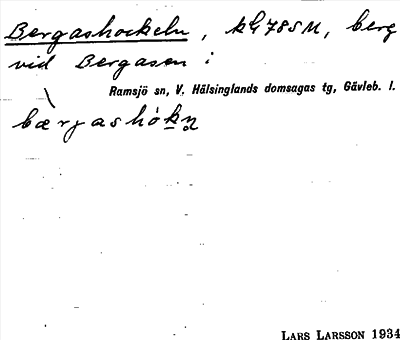 Bergashockeln, kG785M, berg
vid Bergasen i
Ramsjö sn, V. Hälsinglands domsagas tg, Gävleb. l.
bærgashòkn̥
LARS LARSSON 1934